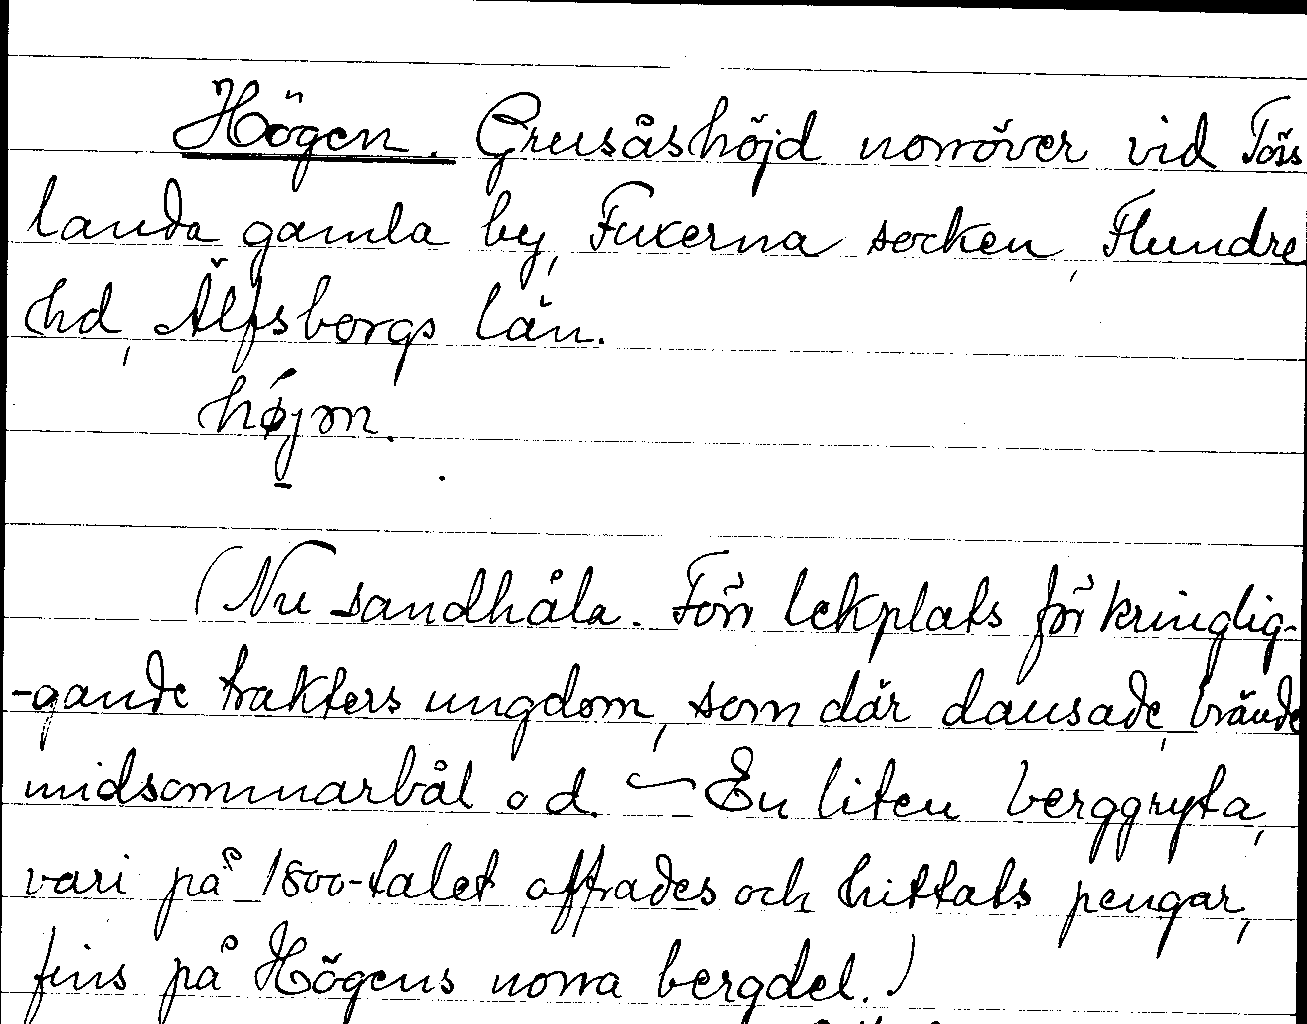 Högen. Grusåshöjd norröver vid Törs
landa gamla by, Fuxerna socken, Flundre
hd, Älfsborgs län.
højən.
(Nu sandhåla. Förr lekplats för kringlig-
-gande trakters ungdom, som där dansade, brände
midsommarbål o d. — En liten berggryta,
vari på 1800-talet offrades och hittats pengar,
fins på Högens norra bergdel.)